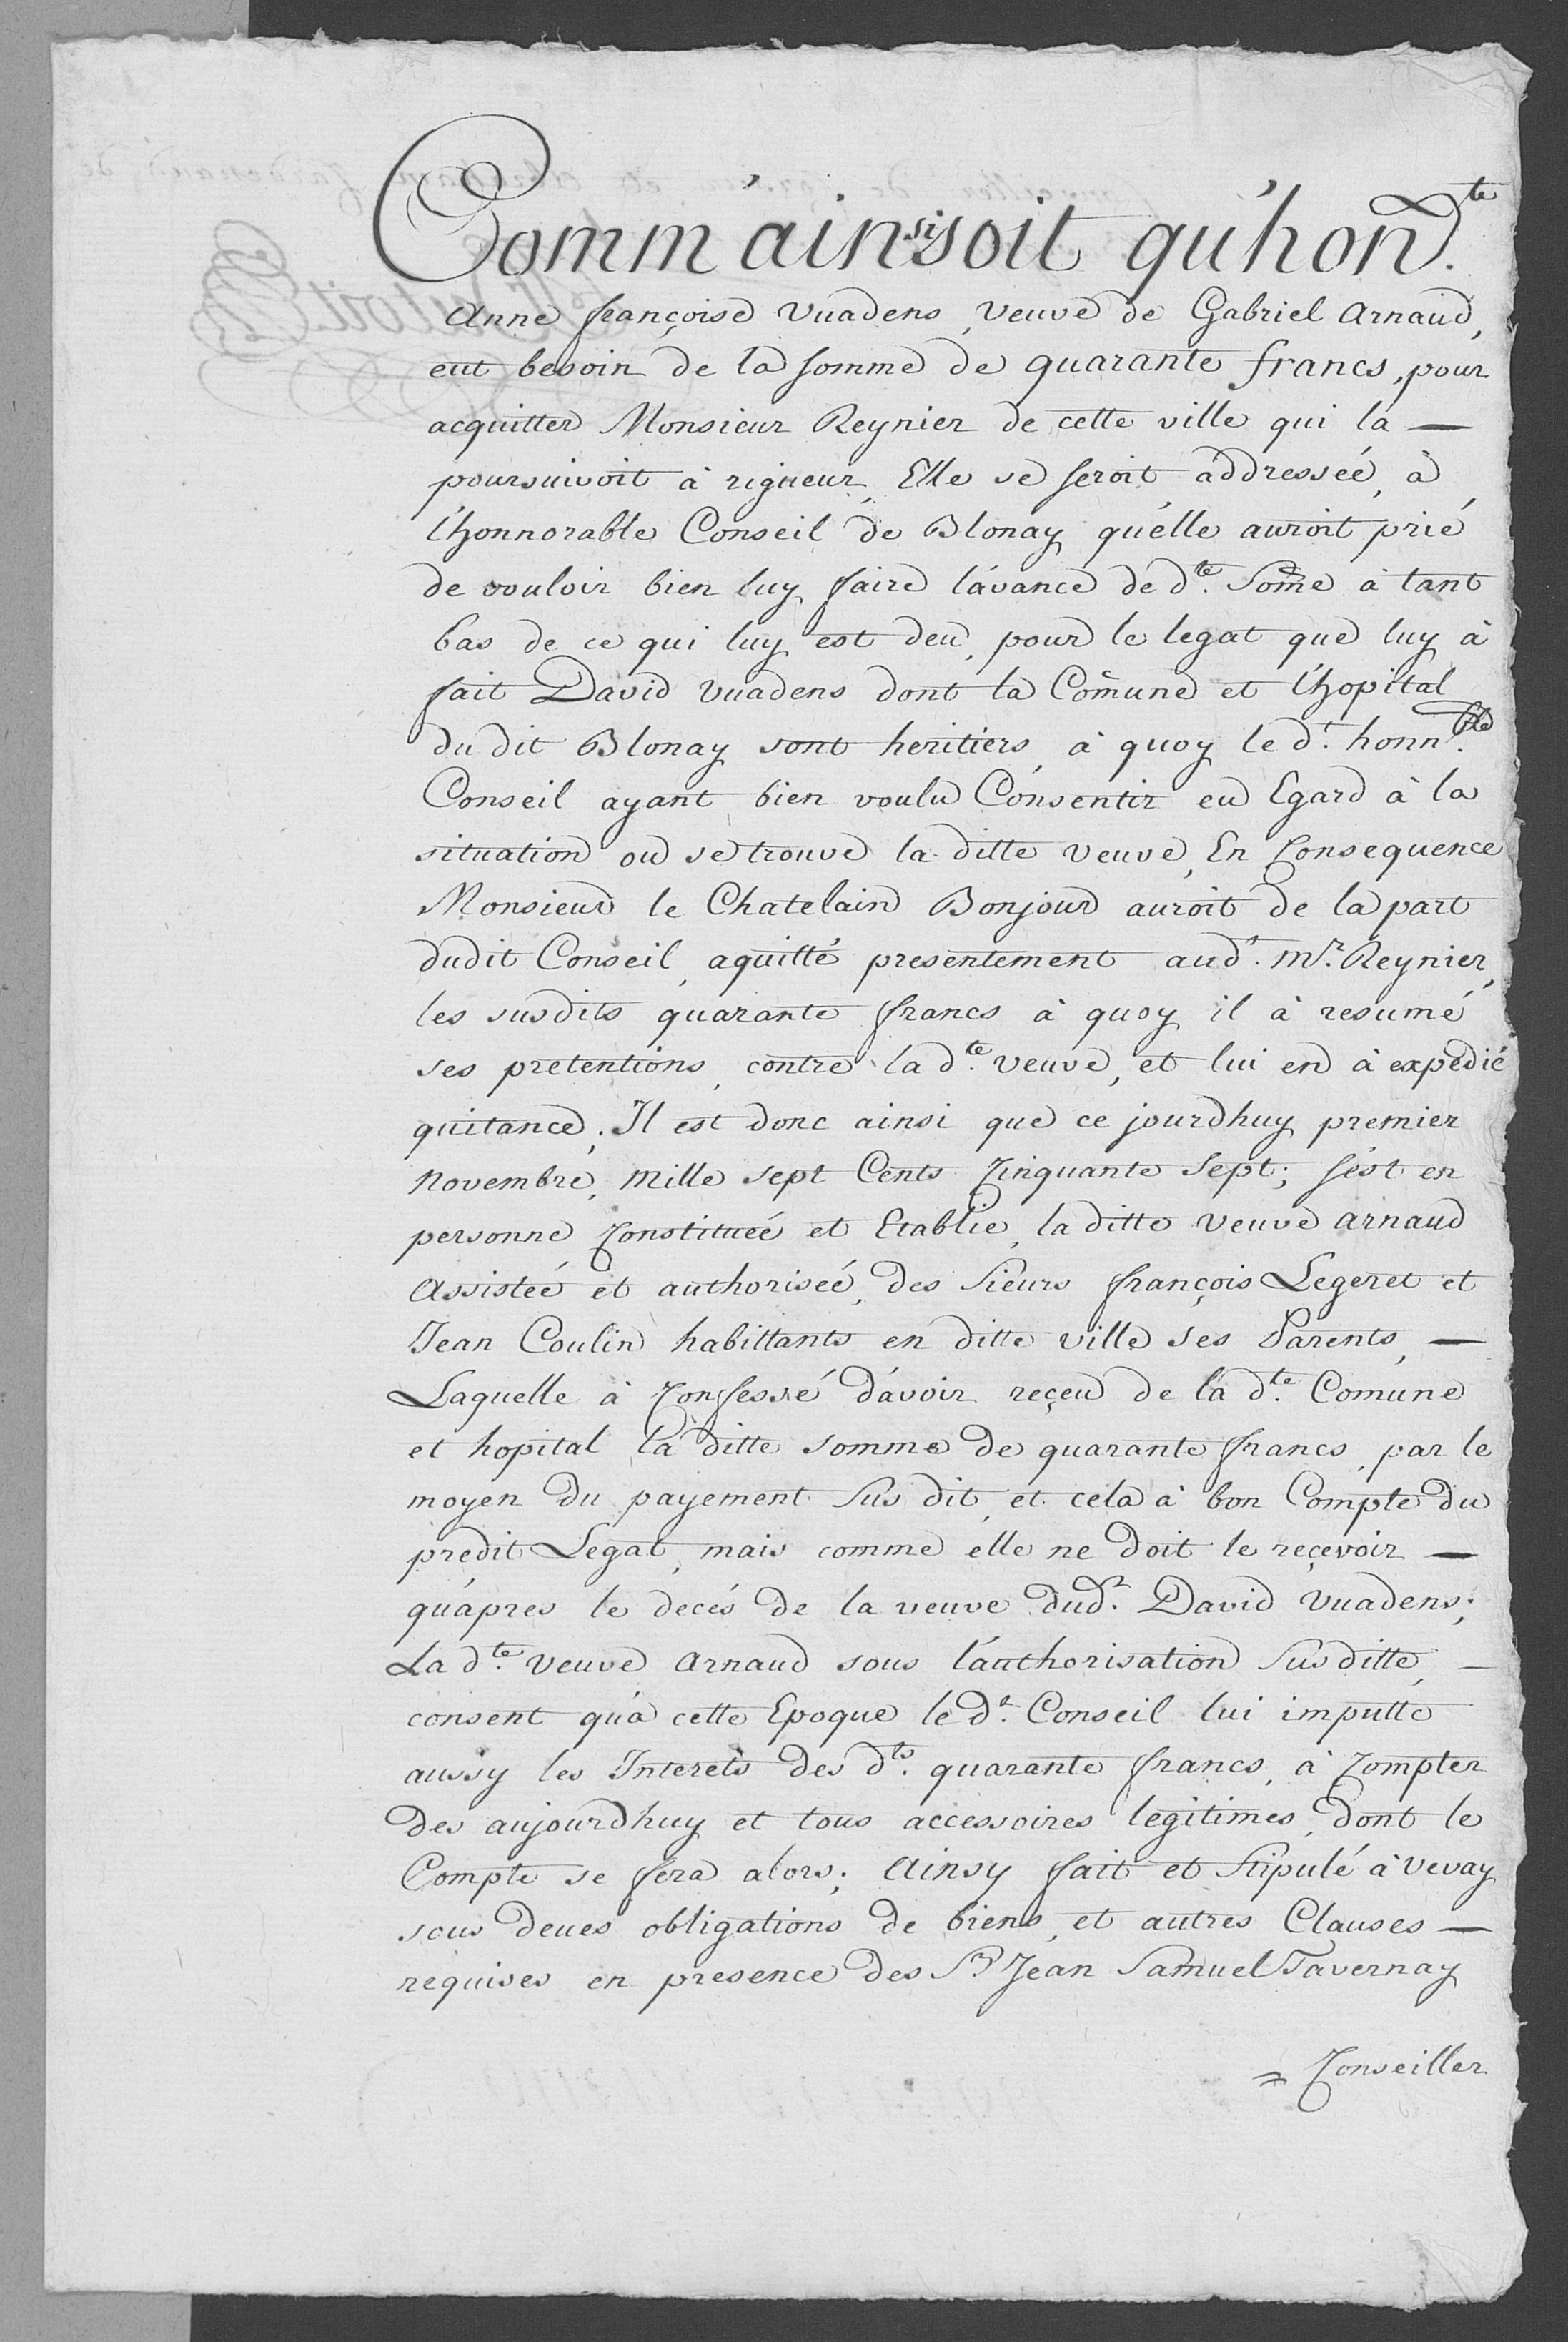 Comm'ainsi soit qu'hon.te
Anne françoise Vuadens, Veuve de Gabriel Arnaud,
eut besoin de la somme de quarante francs, pour
acquitter Monsieur Reynier de cette ville qui la —
poursuivoit à rigueur, Elle se seroit addressée, à
l'honnorable Conseil de Blonay qu'elle auroit prié
de vouloir bien luy faire l'avance de d.te Some à tant
bas de ce qui luy est deu, pour le legat que luy à
fait David Vuadens dont la Comune et l'hopital
du dit Blonay sont heritiers, à quoy le d.t honn.ble
Conseil ayant bien voulu Consentir eu Egard à la
situation ou se trouve la ditte Veuve, En Consequence
Monsieur le Chatelain Bonjour auroit de la part
dudit Conseil, aquitté presentement aud.t M.r Reynier,
les susdits quarante francs à quoy il à resumé
ses pretentions, contre la d.te Veuve, et lui en à expedié
quitance; Il est donc ainsi que ce jourdhuy premier
Novembre, Mille sept Cents Cinquante Sept; s'est en
personne Constituée et Etablie, la ditte Veuve Arnaud
Assistée et authorisée, des Sieurs françois Legeret et
Jean Coulin habittants en ditte ville ses Parents, —
Laquelle à Confessé d'avoir reçeu de la d.te Comune
et hopital la ditte somme de quarante francs, par le
moyen du payement Sus dit, et cela à bon Compte du
predit Legat, mais comme elle ne doit le reçevoir —
qu'apres le decés de la veuve dud.t David Vuadens;
La d.te Veuve Arnaud sous l'authorisation Sus ditte, —
consent qu'a cette Epoque le d.t Conseil lui imputte
aussy les Interets des d.ts quarante francs, à Compter
des aujourdhuy et tous accessoires legitimes, dont le
Compte se fera alors; Ainsy fait et Stipulé à Vevay
sous deues obligations de biens, et autres Clauses —
requises en presence des S.rs Jean Samuel Tavernay
= Conseiller